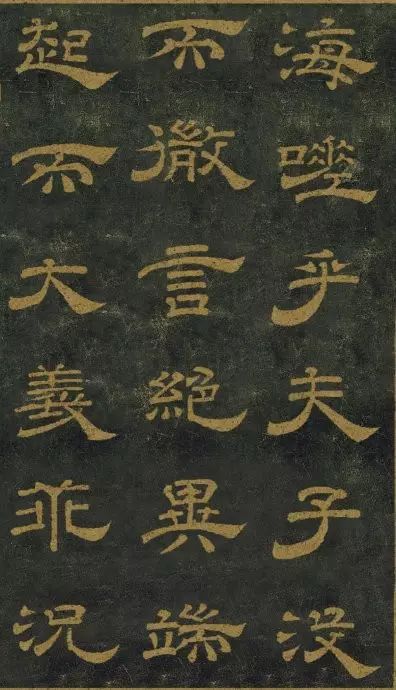 海嗟乎夫子没
而微言絶異端
起而大義乖況